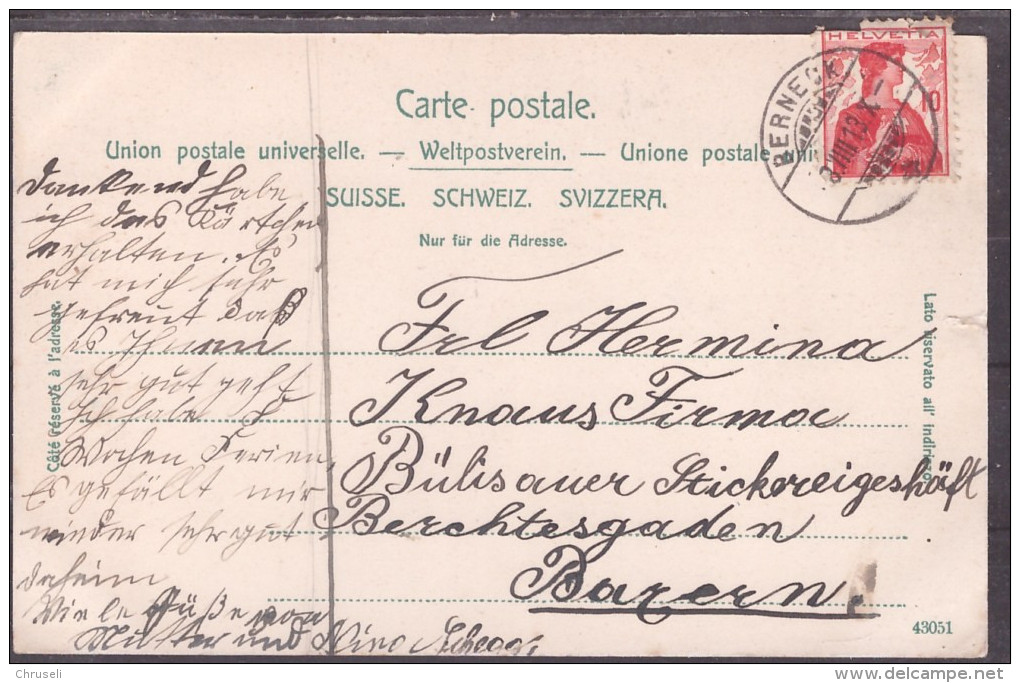 HELVETIA
BERNECK
Carte postale.
Union postale universelle. — Weltpostverein. — Unione postale
SUISSE. SCHWEIZ. SVIZZERA.
Nur für die Adresse.
Côté réservé à l'adresse.
Lato riservato all' indirizzo.
Dankend habe
ich das Kärtchen
erhalten. Es
hat mich sehr
gefreut daß
es Ihnen
sehr gut geht
Ich habe
Wochen Ferien.
Es gefällt mir
wieder sehr gut
daheim
Viele Grüße von
Mutter und
Frl Hermina
Knaus Firma
Bülisauer Stickereigeshäft
Berchtesgaden
Bayern.
43051
Chruseli
www.delcampe.net